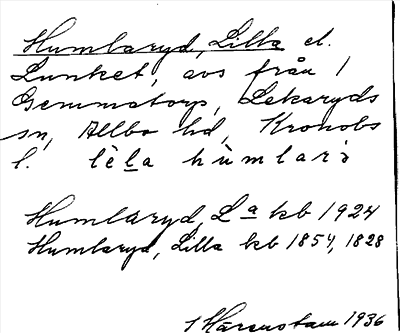 Humlaryd, Lilla el.
Lunket, avs från 1
Gemmatorp, Lekaryds
sn, Allbo hd, Kronobs
l. lèla hùmlarə
Humlaryd, La kb 1924
Humlaryd, Lilla kb 1854, 1828
1936